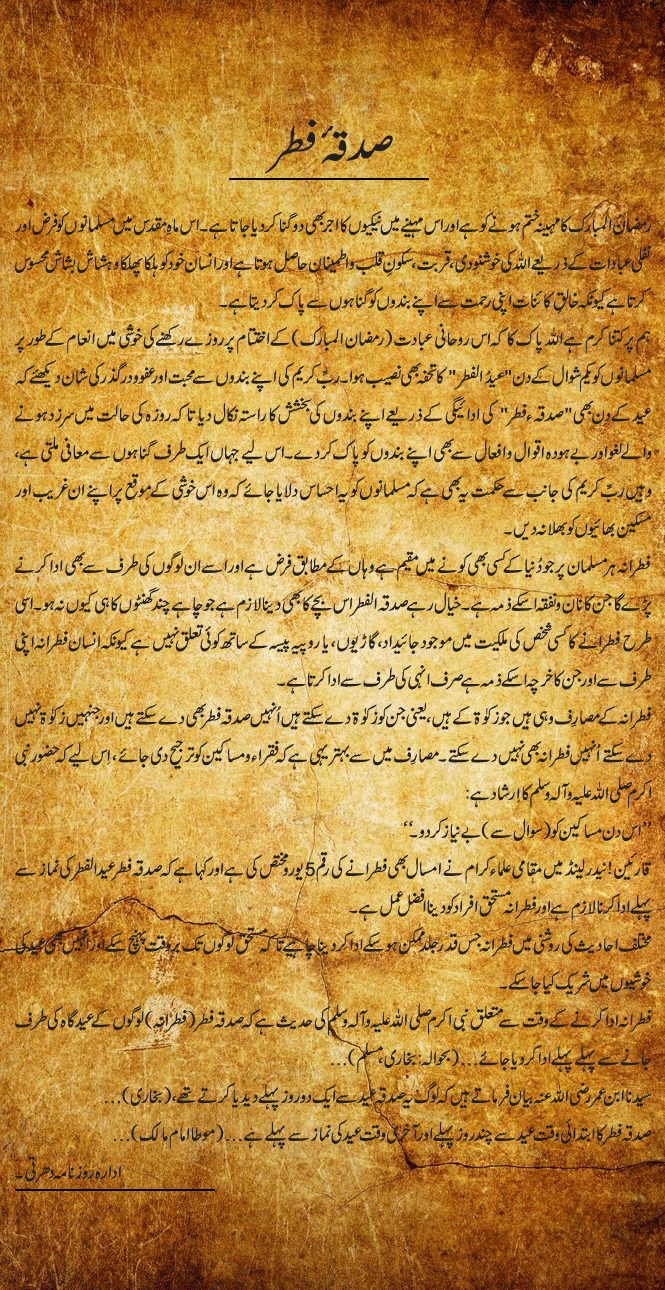 صدقۂ فطر
رمضان المبارک کا مہینہ ختم ہونے کو ہے اور اس مہینے میں نیکیوں کا اجر بھی دوگنا کر دیا جاتا ہے۔ اس ماہِ مقدس میں مسلمانوں کو فرض اور
نفلی عبادات کے ذریعے اللہ کی خوشنودی، قربت، سکونِ قلب و اطمینان حاصل ہوتا ہے اور انسان خود کو ہلکا پھلکا و ہشاش بشاش محسوس
کرتا ہے کیونکہ خالقِ کائنات اپنی رحمت سے اپنے بندوں کو گناہوں سے پاک کر دیتا ہے۔
ہم پر کتنا کرم ہے اللہ پاک کا کہ اس روحانی عبادت (رمضان المبارک) کے اختتام پر روزے رکھنے کی خوشی میں انعام کے طور پر
مسلمانوں کو یکم شوال کے دن "عیدُ الفطر" کا تحفہ بھی نصیب ہوا۔ ربِّ کریم کی اپنے بندوں سے محبت اور عفو و درگذر کی شان دیکھئے کہ
عید کے دن بھی "صدقہء فطر" کی ادائیگی کے ذریعے اپنے بندوں کی بخشش کا راستہ نکال دیا تاکہ روزہ کی حالت میں سرزد ہونے
والے لغو اور بے ہودہ اقوال و افعال سے بھی اپنے بندوں کو پاک کر دے۔ اس لیے جہاں ایک طرف گناہوں سے معافی ملتی ہے،
وہیں ربِّ کریم کی جانب سے حکمت یہ بھی ہے کہ مسلمانوں کو یہ احساس دلایا جائے کہ وہ اس خوشی کے موقع پر اپنے ان غریب اور
مسکین بھائیوں کو بھلا نہ دیں۔
فطرانہ ہر مسلمان پر جو دُنیا کے کسی بھی کونے میں مقیم ہے وہاں کے مطابق فرض ہے اور اسے ان لوگوں کی طرف سے بھی ادا کرنے
پڑے گا جن کا نان و نفقہ اسکے ذمہ ہے۔ خیال رہے صدقہ الفطر اس بچے کا بھی دینا لازم ہے جو چاہے چند گھنٹوں کا ہی کیوں نہ ہو۔ اسی
طرح فطرانے کا کسی شخص کی ملکیت میں موجود جائیداد، گاڑیوں، یا روپیہ پیسہ کے ساتھ کوئی تعلق نہیں ہے کیونکہ انسان فطرانہ اپنی
طرف سے اور جن کا خرچہ اسکے ذمہ ہے صرف انہی کی طرف سے ادا کرتا ہے۔
فطرانہ کے مصارِف وہی ہیں جو زکوٰۃ کے ہیں، یعنی جن کو زکوٰۃ دے سکتے ہیں اُنہیں صدقہ فطر بھی دے سکتے ہیں اور جنہیں زکوٰۃ نہیں
دے سکتے اُنہیں فطرانہ بھی نہیں دے سکتے۔ مصارِف میں سے بہتر یہی ہے کہ فقراء و مساکین کو ترجیح دی جائے، اِس لیے کہ حضور نبی
اکرم صلی اللہ علیہ وآلہ وسلم کا اِرشاد ہے:
”اس دن مساکین کو (سوال سے) بے نیاز کر دو۔“
قارئین! نیدرلینڈ میں مقامی علماء کرام نے امسال بھی فطرانے کی رقم 5 یورو مختص کی ہے اور کہا ہے کہ صدقہ فطر عیدالفطر کی نماز سے
پہلے ادا کرنا لازم ہے اور فطرانہ مستحق افراد کو دینا افضل عمل ہے۔
مختلف احادیث کی روشنی میں فطرانہ جس قدر جلد ممکن ہو سکے ادا کر دینا چاہیے تاکہ مستحق لوگوں تک بروقت پہنچ سکے اور انہیں بھی عید کی
خوشیوں میں شریک کیا جا سکے۔
فطرانہ ادا کرنے کے وقت سے متعلق نبی اکرم صلی اللہ علیہ وآلہ وسلم کی حدیث ہے کہ صدقہ فطر (فطرانہ) لوگوں کے عیدگاہ کی طرف
جانے سے پہلے پہلے ادا کر دیا جائے... (بحوالہ: بخاری، مسلم)...
سیدنا ابن عمر رضی اللہ عنہ بیان فرماتے ہیں کہ لوگ یہ صدقہ عید سے ایک دو روز پہلے دیدیا کرتے تھے، (بخاری)...
صدقہ فطر کا ابتدائی وقت عید سے چند روز پہلے اور آخری وقت عید کی نماز سے پہلے ہے... (موطا امام مالک)...
ادارہ روزنامہ دھرتی۔